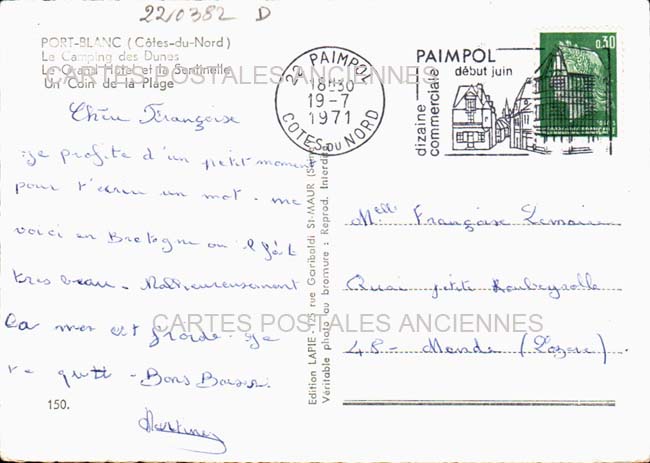 220382 D
PORT-BLANC (Côtes-du-Nord)
Le Camping des Dunes
Le Grand Hôtel et la Sentinelle
Un Coin de la Plage
CARTES POSTALES ANCIENNES
Chère Françoise
je profite d'un petit moment
pour t'écrire un mot. me
voici en Bretagne ou il fait
très beau. Malheureusement
la mer est froide. je
te quitte - Bons Baisers.
Martine
150.
Edition LAPIE - 125 rue Garibaldi St-MAUR (Seine)
Véritable photo au bromure : Reprod. Interdite
22 PAIMPOL
18H30
19-7
1971
COTES DU NORD
PAIMPOL
début juin
dizaine
commerciale
0,30
Melle Françoise Lemaire
Quai petite Roubeyrolle
48 - Mende (Lozère)
CARTES POSTALES ANCIENNES